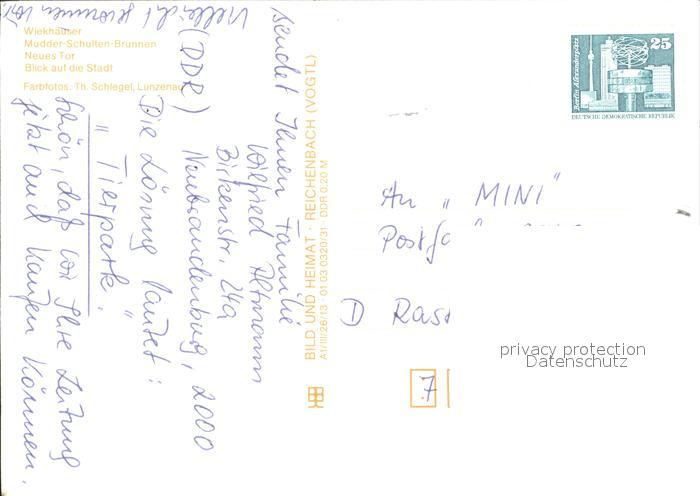 Wiekhäuser
Mudder-Schulten-Brunnen
Neues Tor
Blick auf die Stadt
Farbfotos: Th. Schlegel, Lunzenau
sendet Ihnen Familie
Wilfried Altmann
Birkenstr. 24a
Neubrandenburg, 2000
(DDR)
Die Lösung lautet:
"Tierpark".
Schön, daß wir Ihre Zeitung
jetzt auch kaufen können.
Vielleicht gewinnen wir
BILD UND HEIMAT · REICHENBACH (VOGTL)
A1/III/26/13 · 01 03 0320/31 · DDR 0,20 M
Berlin, Alexanderplatz
25
DEUTSCHE DEMOKRATISCHE REPUBLIK
An "MINI"
Postfa
D Rast
7
privacy protection
Datenschutz